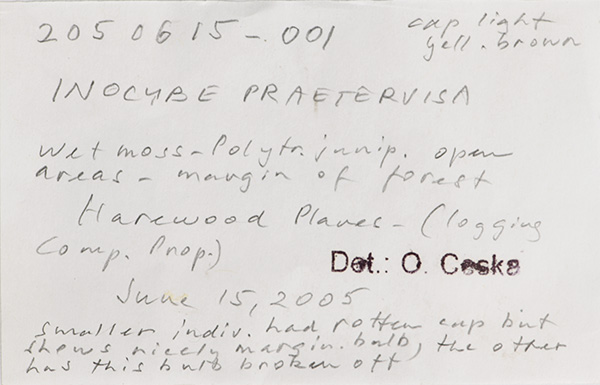 2050615-.001
cap light
yell. brown
INOCYBE PRAETERVISA
wet moss - Polytr. junip. open
areas - margin of forest
Harewood Planes - (logging
Comp. Prop.)
Det.: O. Ceska
June 15, 2005
smaller indiv. had rotten cap but
shows nicely margin. bulb, the other
has this bulb broken off